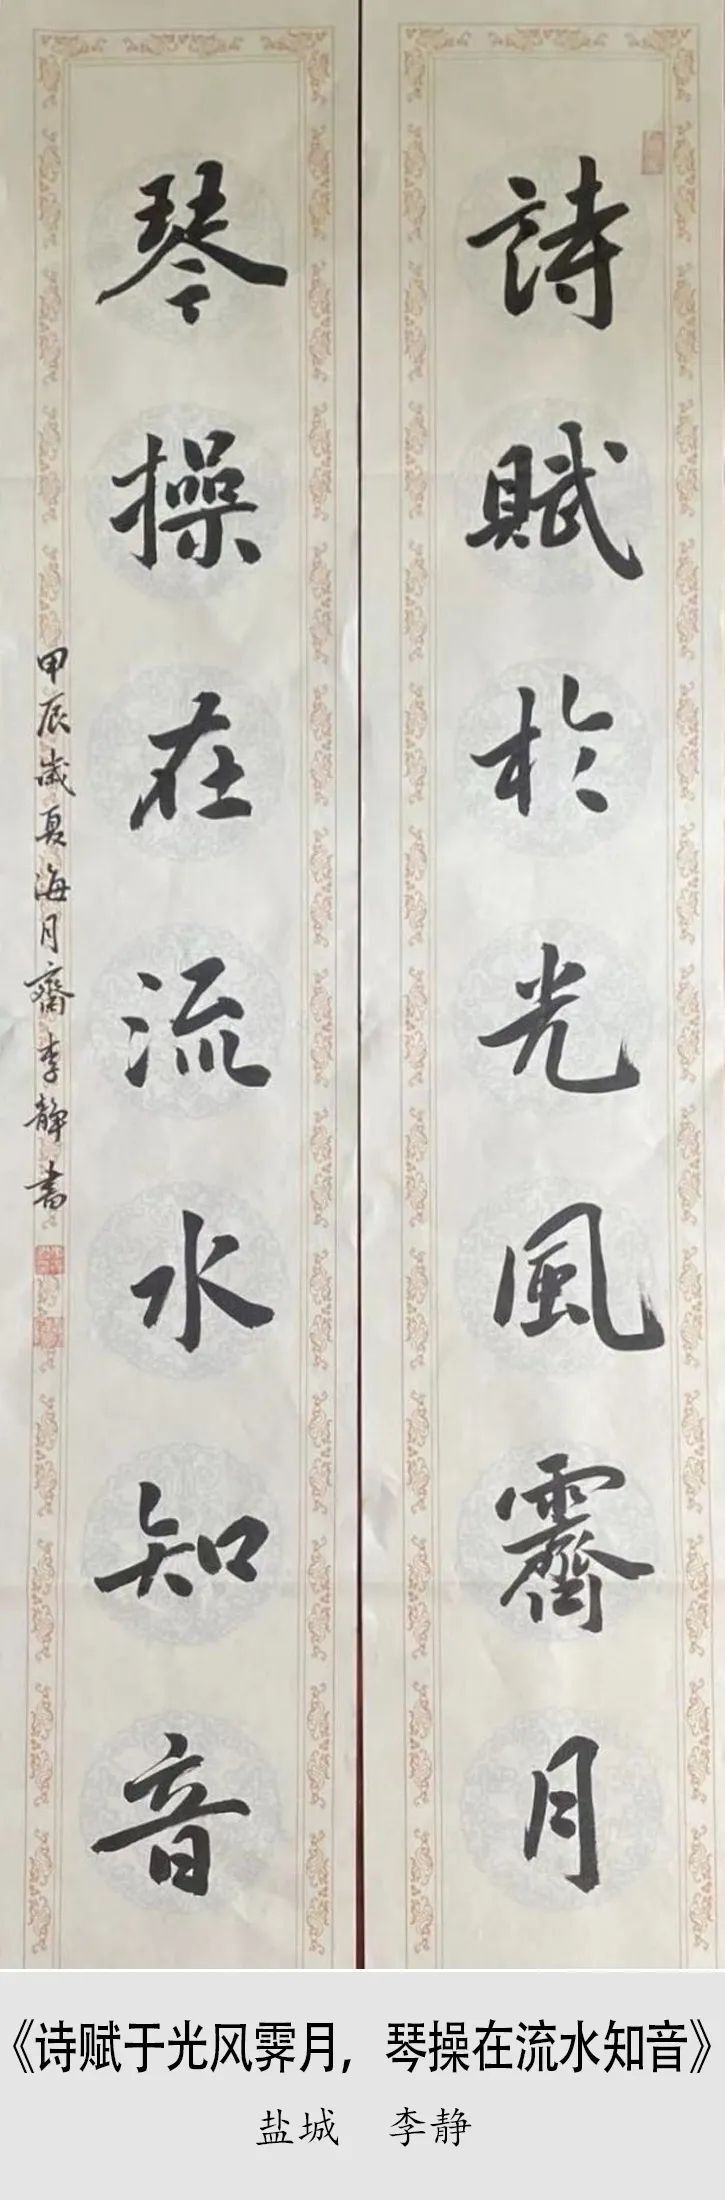 詩賦於光風霽月
琴操在流水知音
甲辰歲夏海月齋李靜書
《诗赋于光风霁月，琴操在流水知音》
盐城 李静